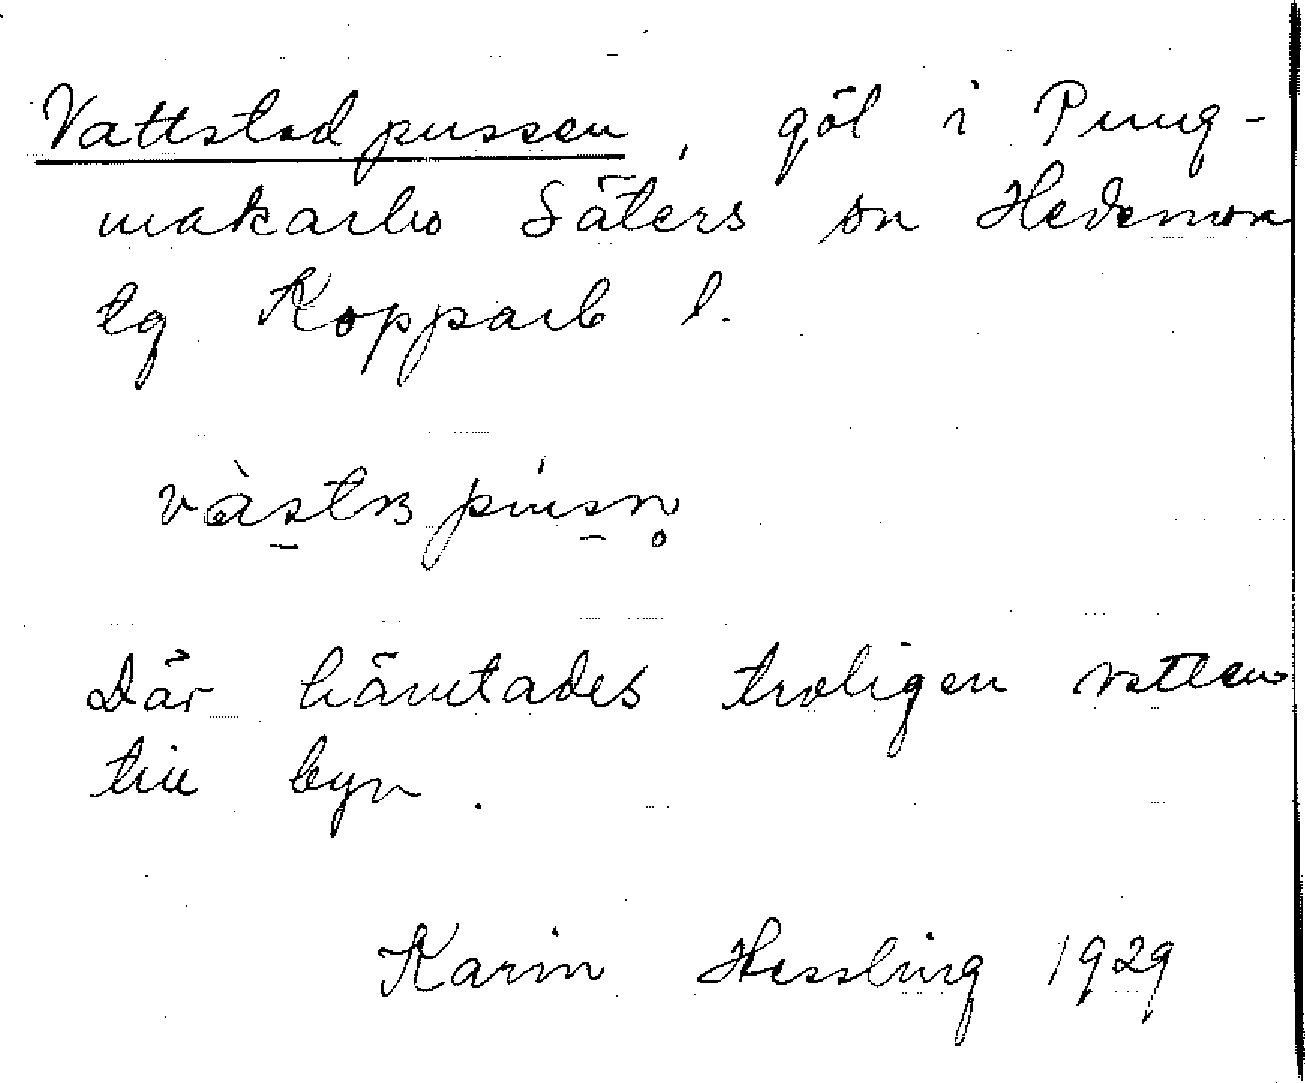 Vattstadpussen, göl i Pung-
makarbo Säters sn Hedemora
tg Kopparb l.
Där hämtades troligen vatten
till byn.
Karin Hessling 1929